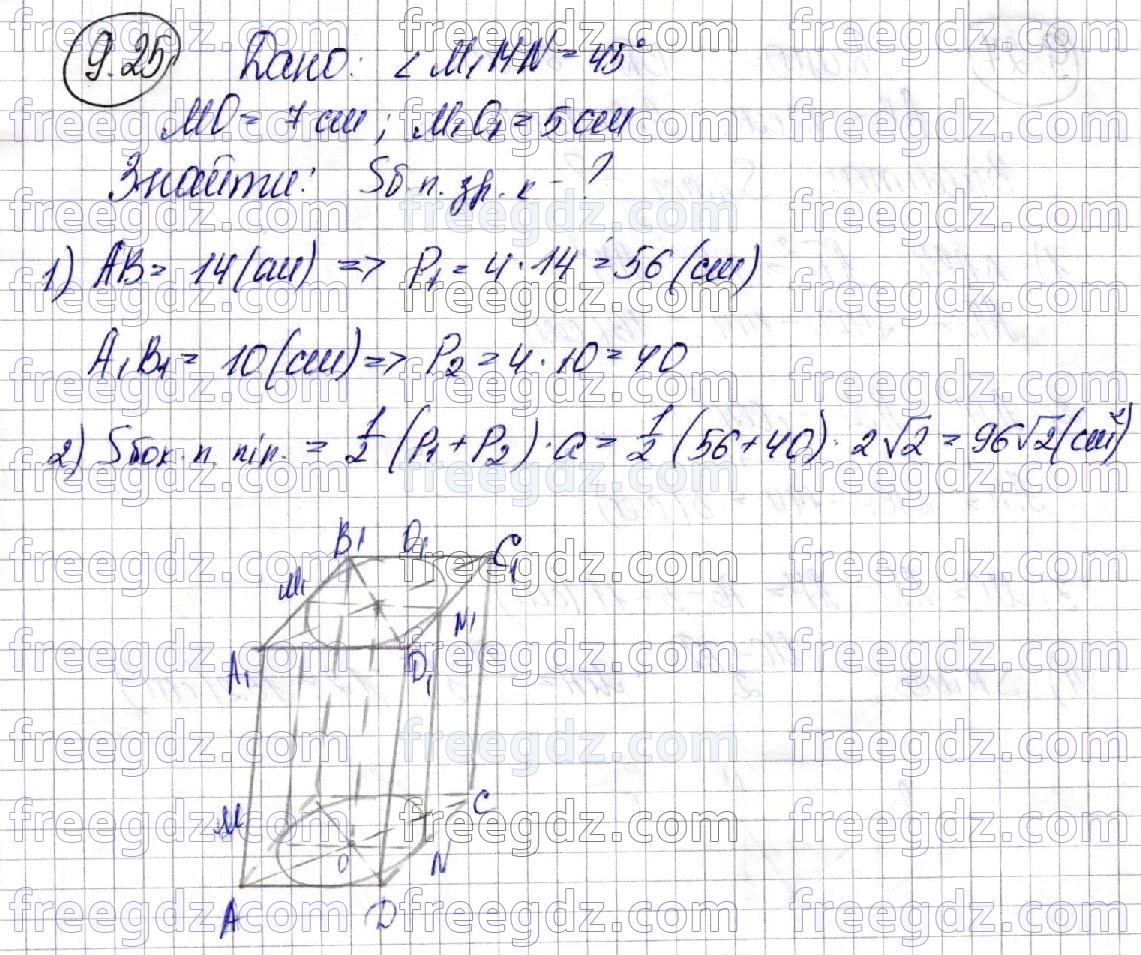 9.25 Дано: ∠M₁MN = 45°
MO = 7 см; M₁O₁ = 5 см
Знайти: Sб.п. зр. к - ?
1) AB = 14 (см) => P₁ = 4·14 = 56 (см)
A₁B₁ = 10 (см) => P₂ = 4·10 = 40
2) Sбок. п. пір. = 1/2 (P₁ + P₂)·a = 1/2 (56 + 40)·2√2 = 96√2 (см²)
B₁ O₁ C₁
M₁ N₁
A₁ D₁
M C
O N
A D
freegdz.com